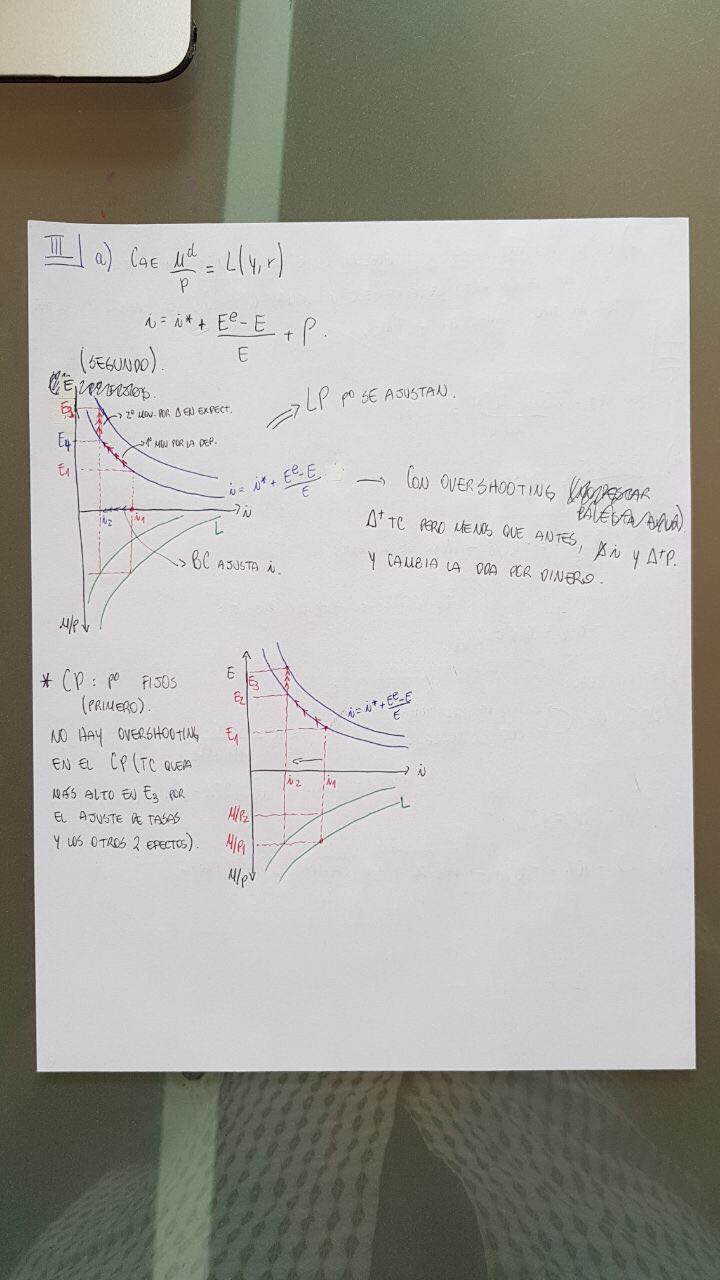 III a) CAE M^d/P = L(Y,r)
i = i* + (E^e - E)/E + P.
(SEGUNDO).
E
E3
2º MOV. POR Δ EN EXPECT.
E4
1º MOV POR LA DEP.
E1
i = i* + (E^e - E)/E
i2 i1 i
L
BC AJUSTA i.
M/P
LP pº SE AJUSTAN.
→ CON OVERSHOOTING
Δ⁺ TC PERO MENOS QUE ANTES, Δi Y Δ⁺P.
Y CAMBIA LA DDA POR DINERO.
* CP: pº FIJOS
(PRIMERO).
NO HAY OVERSHOOTING
EN EL CP (TC QUEDA
MÁS ALTO EN E3 POR
EL AJUSTE DE TASAS
Y LOS OTROS 2 EFECTOS).
E
E3
E2
i = i* + (E^e - E)/E
E1
i2 i1 i
L
M/P2
M/P1
M/P